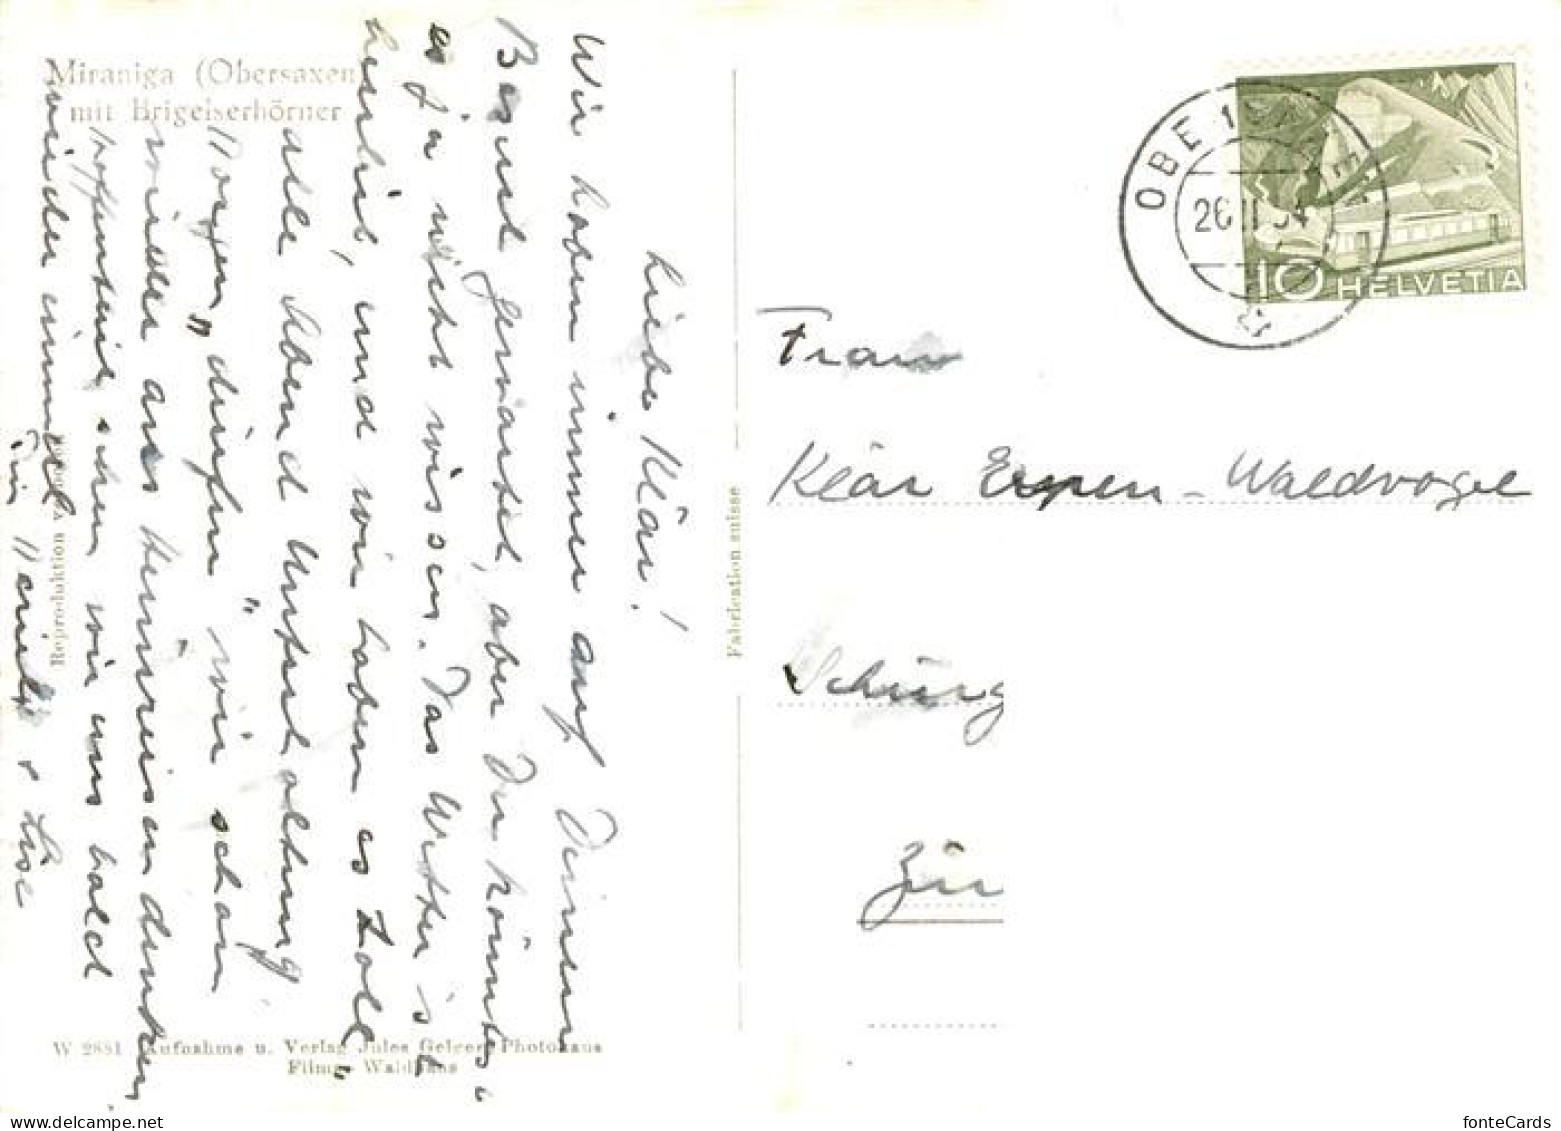 Miraniga (Obersaxen)
mit Brigelserhörner
Liebe Klär!
Wir haben immer auf Deinen
Besuch gewartet, aber Du könntest
es ja nicht wissen. Das Wetter ist
herrlich, und wir haben es toll
alle Abend Unterhaltung
Morgen "dürfen" wir schon
wieder ans Heimreisen denken
hoffentlich sehen wir uns bald
wieder einmal
& Lise
Reproduktion
W 2881 Aufnahme u. Verlag Jules Geiger, Photohaus
Flims-Waldhaus
Fabrication suisse
OBE
26.II.54
10 HELVETIA
Frau
Klär Erpen-Waldvogel
Schürg
Zür
fonteCards